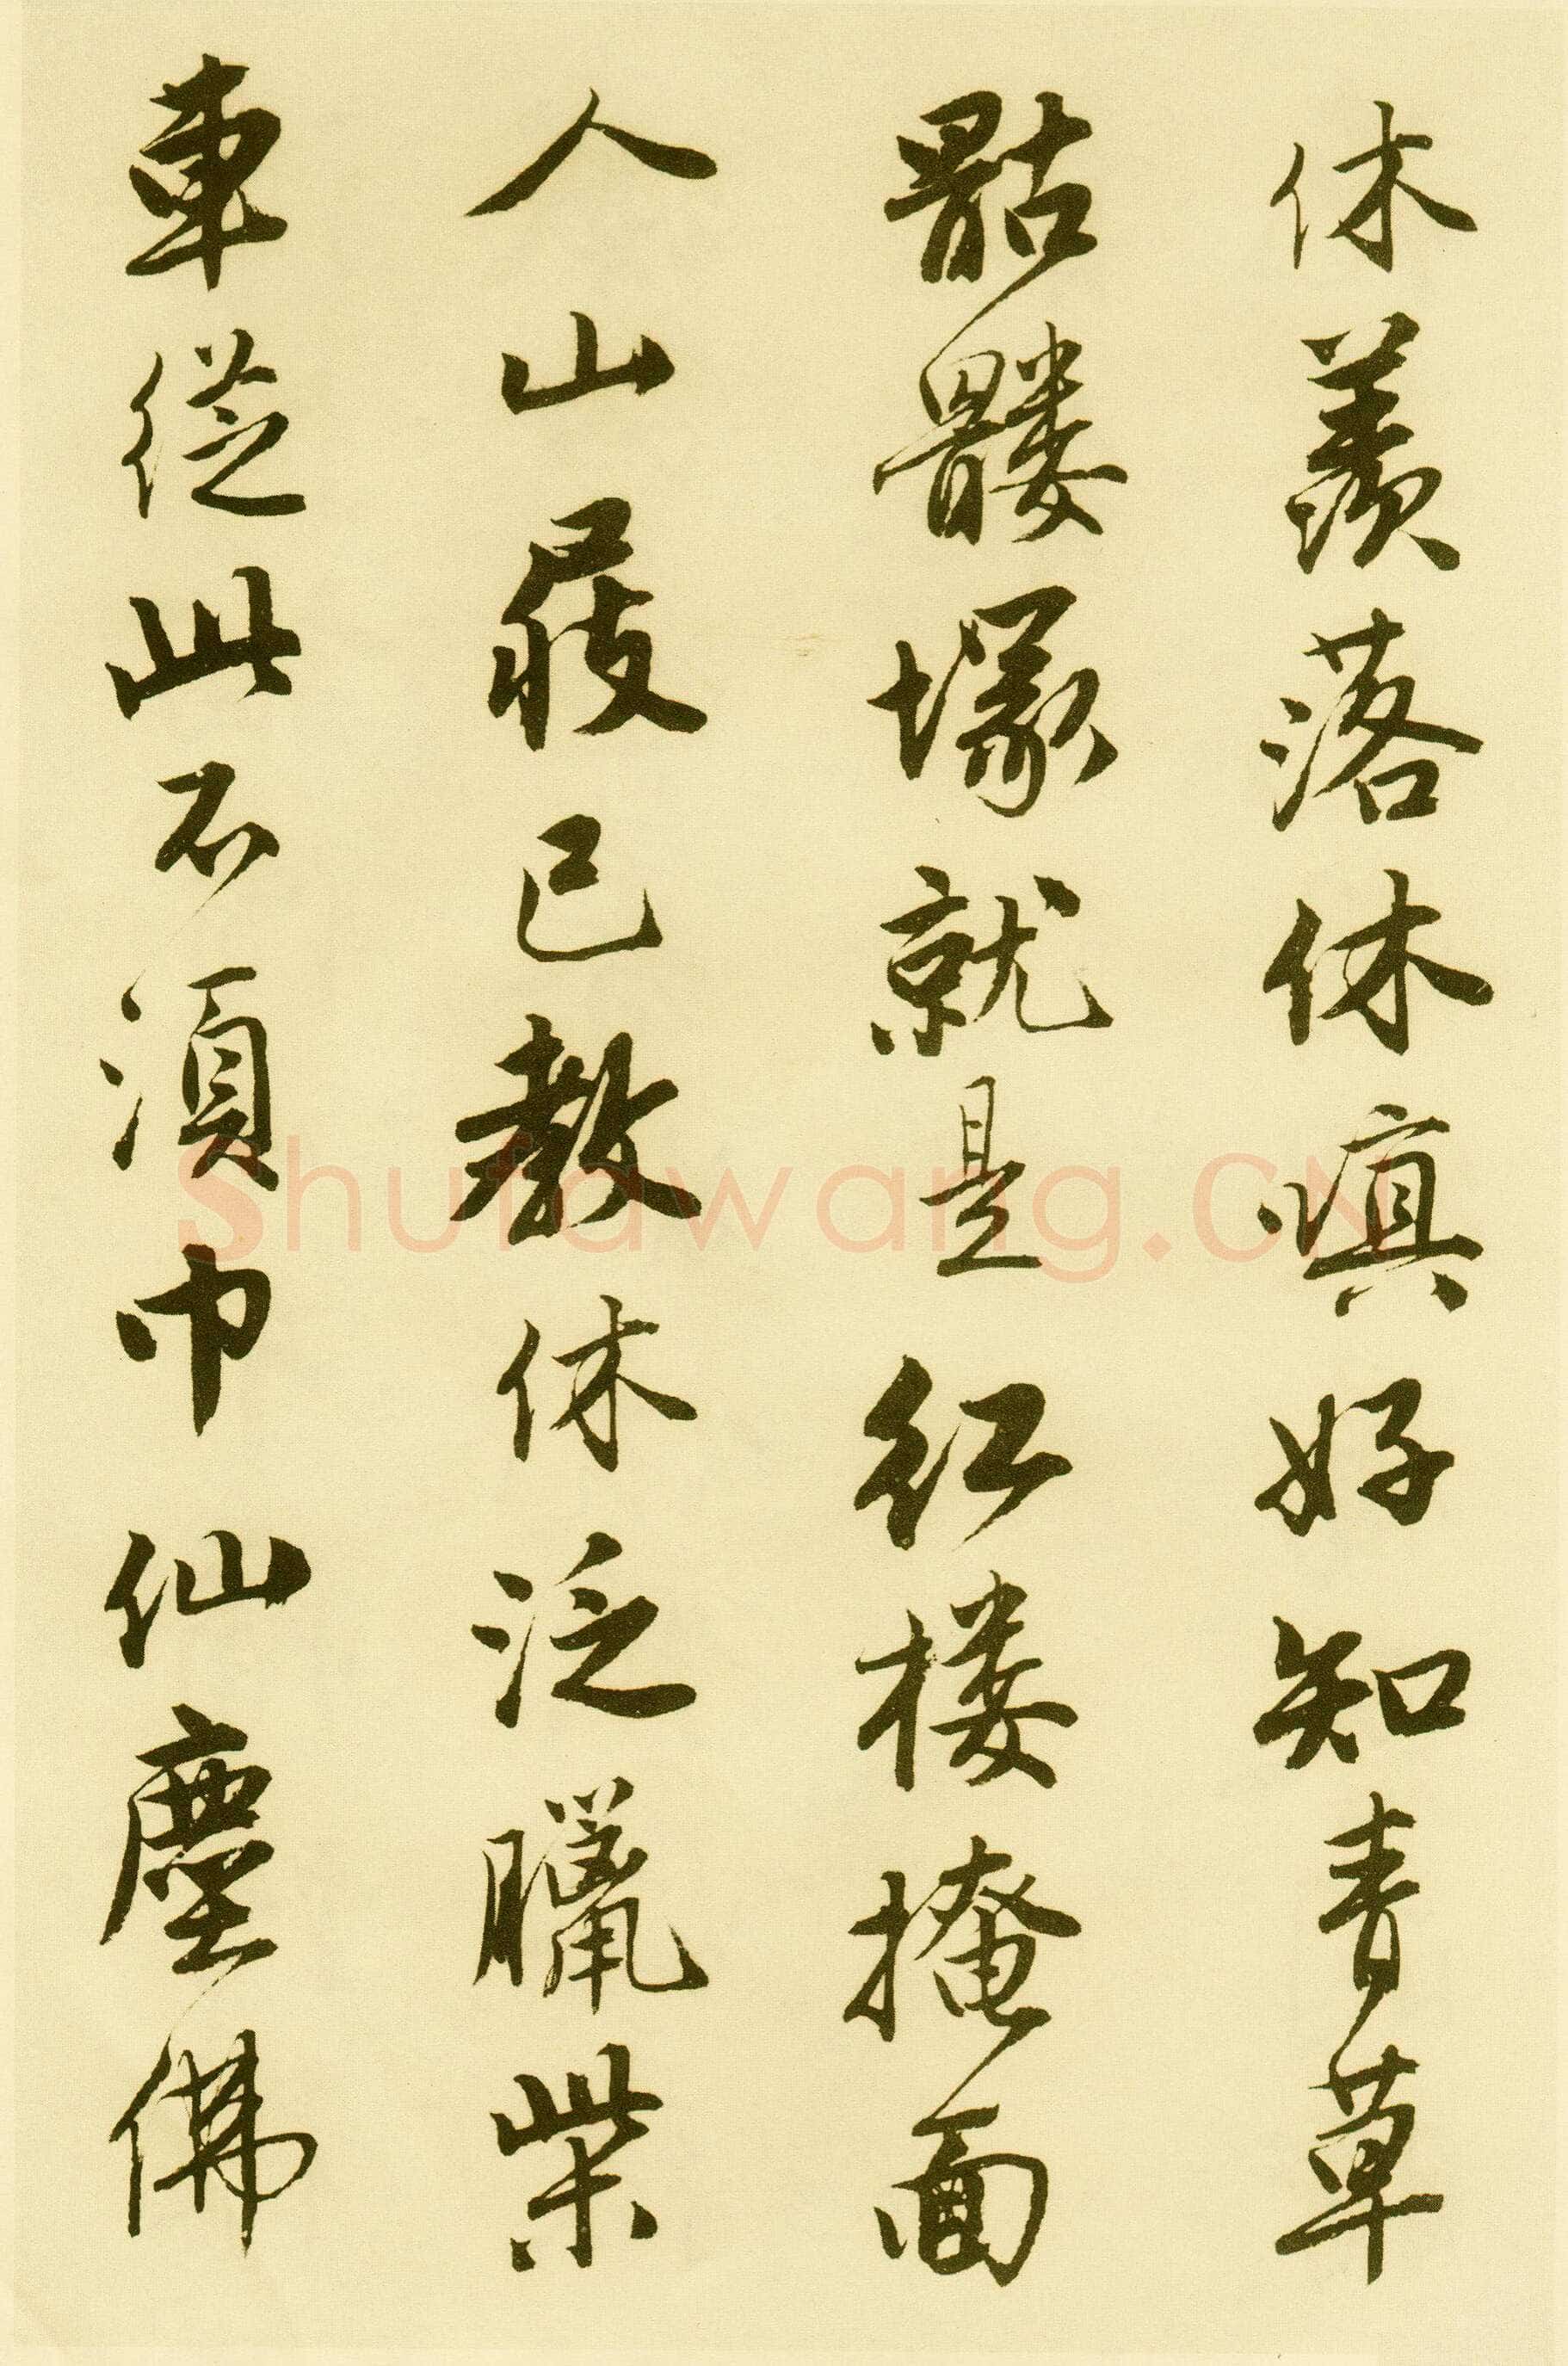 休羡落休嗔好知青草
骷髅塚就是红楼掩面
人山屐已教休泛臘柴
車從此不須巾仙塵佛
Shufawang.CN